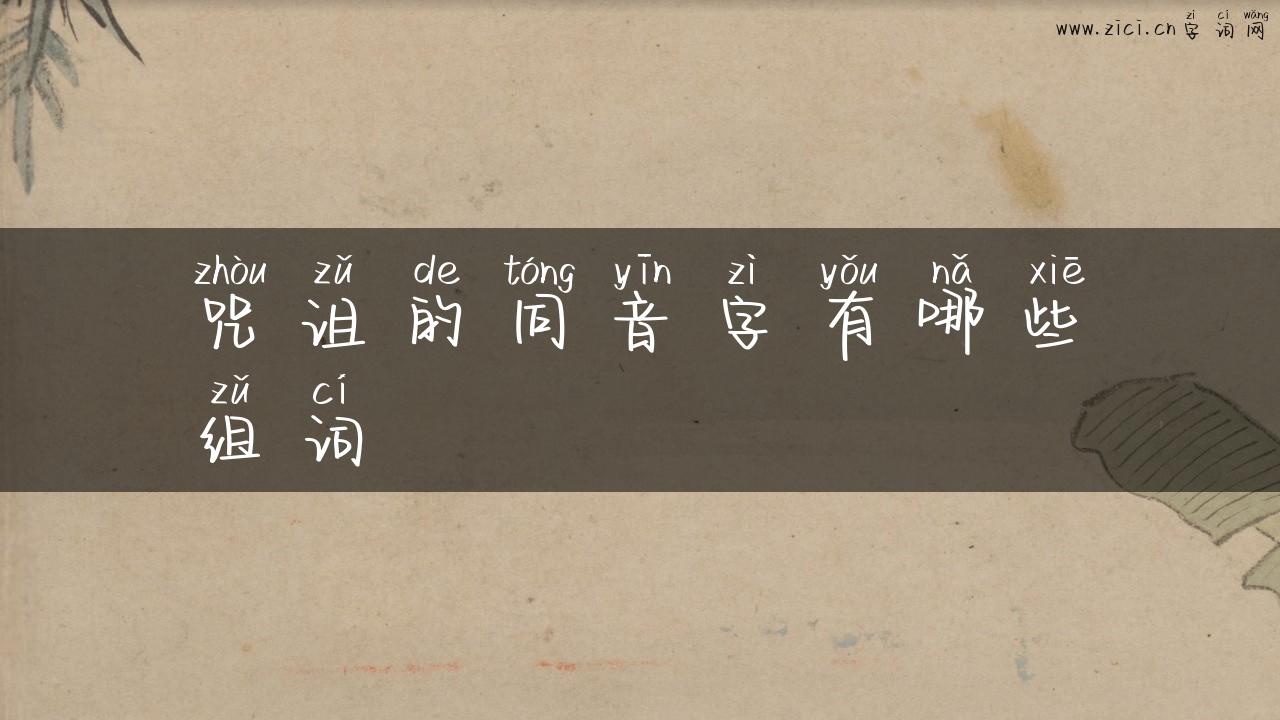 zì cí wǎng
www.zici.cn 字词网
zhòu zǔ de tóng yīn zì yǒu nǎ xiē
咒诅的同音字有哪些
zǔ cí
组词